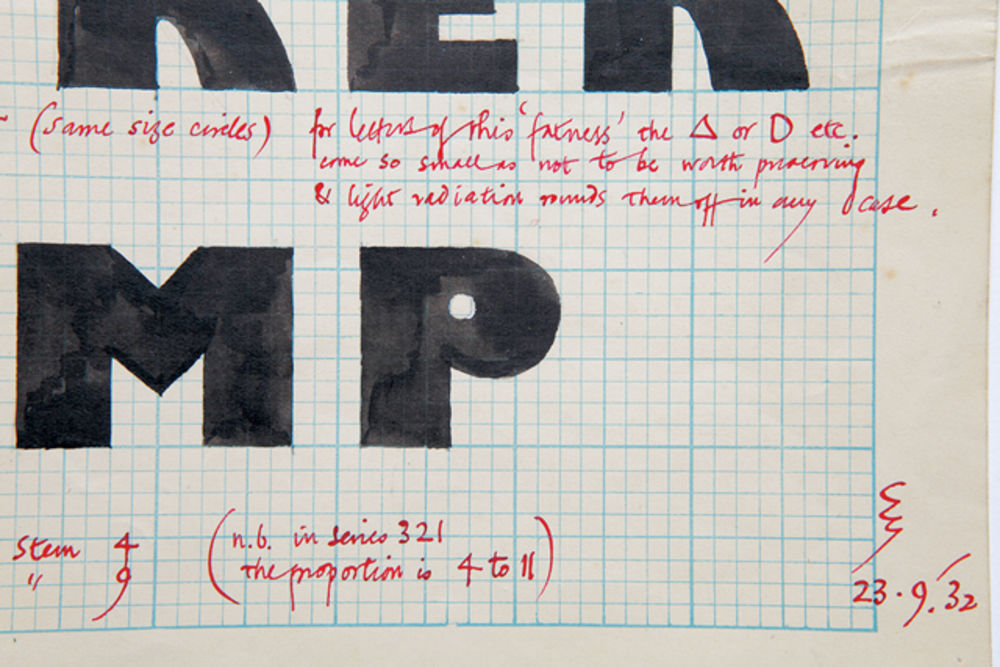 RER
(same size circles) for letters of this 'fatness' the Δ or D etc.
come so small as not to be worth preserving
& light radiation rounds them off in any case.
MP
stem 4
" 9
(n.b. in series 321
the proportion is 4 to 11)
23.9.32